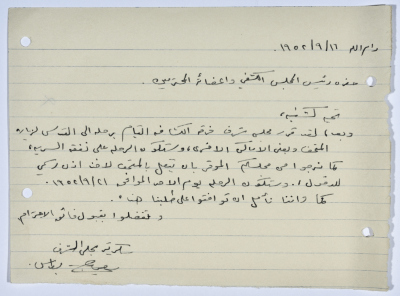 رام الله ١٩٥٢/٩/١٦.
حضرة رئيس المجلس الكشفي واعضائه المحترمين.
تحية كشفية،
وبعد، لقد قرر مجلس شرف فرقة الكشافة القيام برحلة الى القدس لزيارة
المتحف وبعض الاماكن الاخرى، وستكون الرحلة على نفقة السرية،
كما نرجو من مجلسكم الموقر بان يتصل بالمتحف لاخذ اذن رسمي
للدخول. وستكون الرحلة يوم الاحد الموافق ١٩٥٢/٩/٢١.
كما واننا نأمل ان توافقوا على طلبنا هذا.
وتفضلوا بقبول فائق الاحترام
سكرتير مجلس الشرف